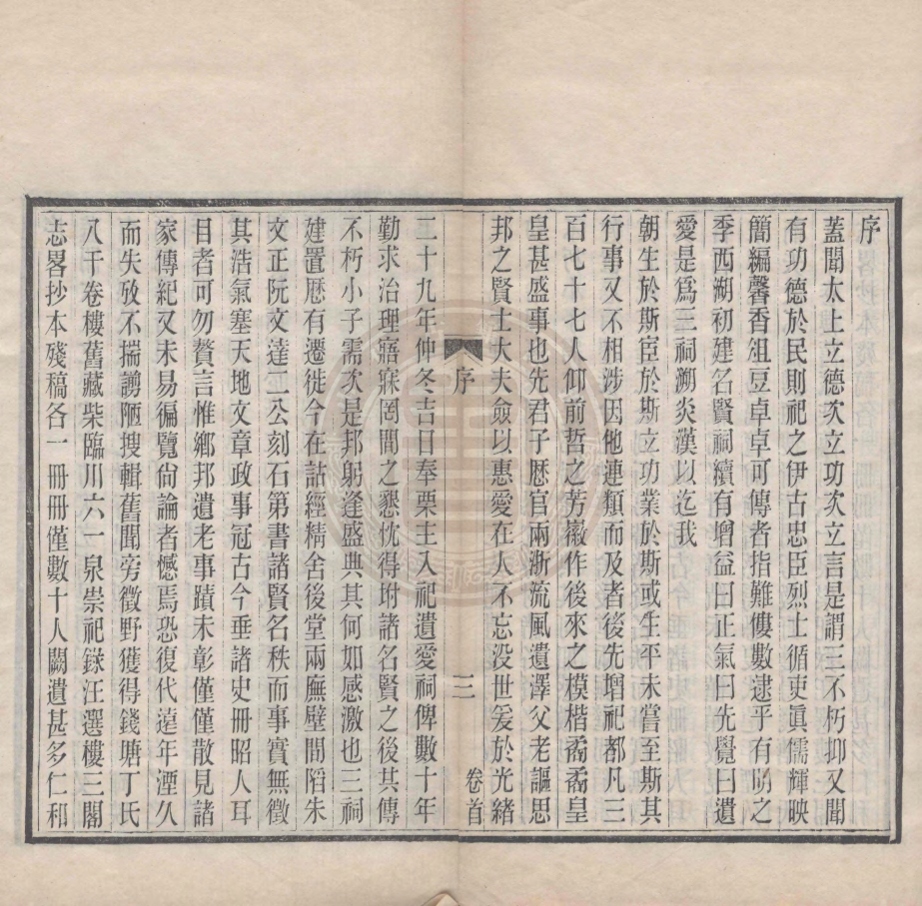 序
蓋聞太上立德次立功次立言是謂三不朽抑又聞
有功德於民則祀之伊古忠臣烈士循吏眞儒輝映
簡編馨香俎豆卓卓可傳者指難僂數逮乎有明之
季西湖初建名賢祠續有增益曰正氣曰先覺曰遺
愛是爲三祠溯炎漢以迄我
朝生於斯宦於斯立功業於斯或生平未嘗至斯其
行事又不相涉因他連類而及者後先增祀都凡三
百七十七人仰前哲之芳徽作後來之模楷矞矞皇
皇甚盛事也先君子歴官兩浙流風遺澤父老謳思
邦之賢士大夫僉以惠愛在人不忘没世爰於光緒
序
三
卷首
二十九年仲冬吉日奉栗主入祀遺愛祠俾數十年
勤求治理寤寐罔間之懇忱得坿諸名賢之後其傳
不朽小子需次是邦躬逢盛典其何如感激也三祠
建置歴有遷徙今在詁經精舍後堂兩廡壁間陷朱
文正阮文達二公刻石第書諸賢名秩而事實無徵
其浩氣塞天地文章政事冠古今垂諸史冊昭人耳
目者可勿贅言惟鄉邦遺老事蹟未彰僅僅散見諸
家傳紀又未易徧覽尙論者憾焉恐復代遠年湮久
而失攷不揣謭陋搜輯舊聞旁徵野獲得錢塘丁氏
八千卷樓舊藏柴臨川六一泉崇祀錄汪選樓三閣
志畧抄本殘稿各一冊冊僅數十人闕遺甚多仁和